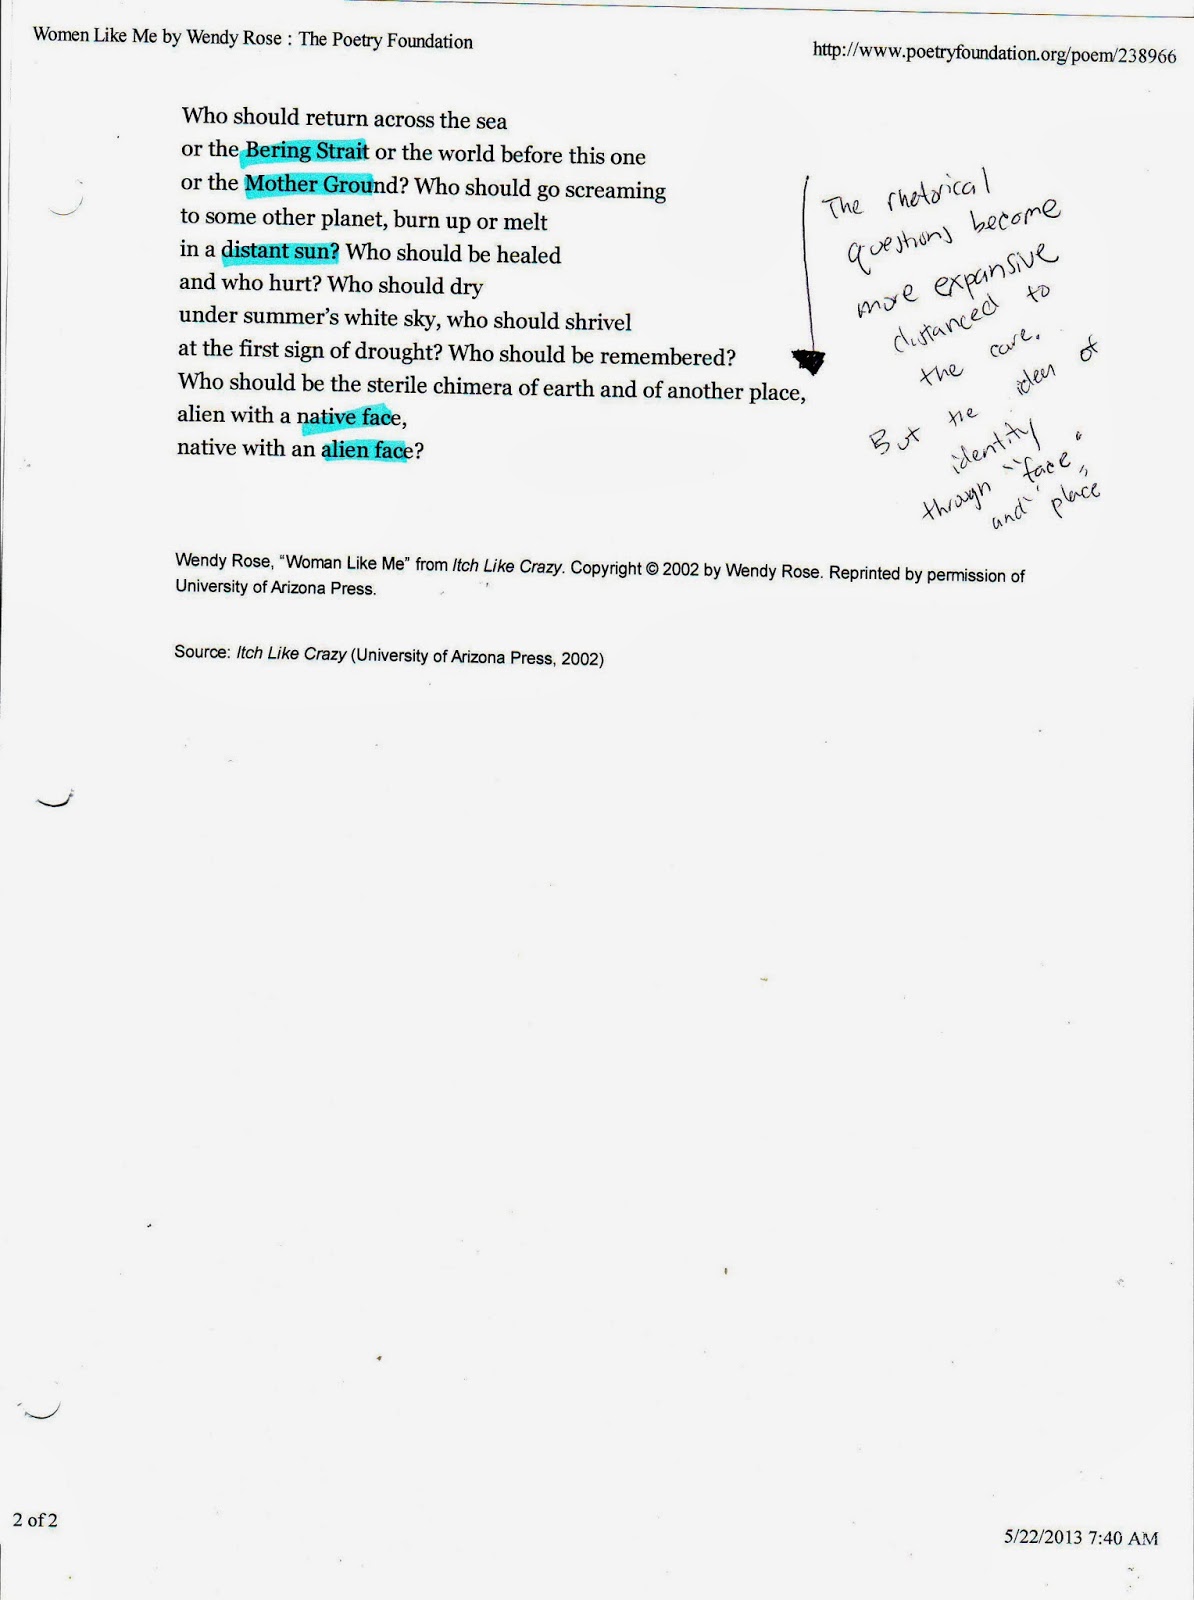 Women Like Me by Wendy Rose : The Poetry Foundation
http://www.poetryfoundation.org/poem/238966
Who should return across the sea
or the Bering Strait or the world before this one
or the Mother Ground? Who should go screaming
to some other planet, burn up or melt
in a distant sun? Who should be healed
and who hurt? Who should dry
under summer’s white sky, who should shrivel
at the first sign of drought? Who should be remembered?
Who should be the sterile chimera of earth and of another place,
alien with a native face,
native with an alien face?
The rhetorical
questions become
more expansive
distanced to
the core.
But the idea of
identity
through "face"
and "place"
Wendy Rose, “Woman Like Me” from Itch Like Crazy. Copyright © 2002 by Wendy Rose. Reprinted by permission of
University of Arizona Press.
Source: Itch Like Crazy (University of Arizona Press, 2002)
2 of 2
5/22/2013 7:40 AM